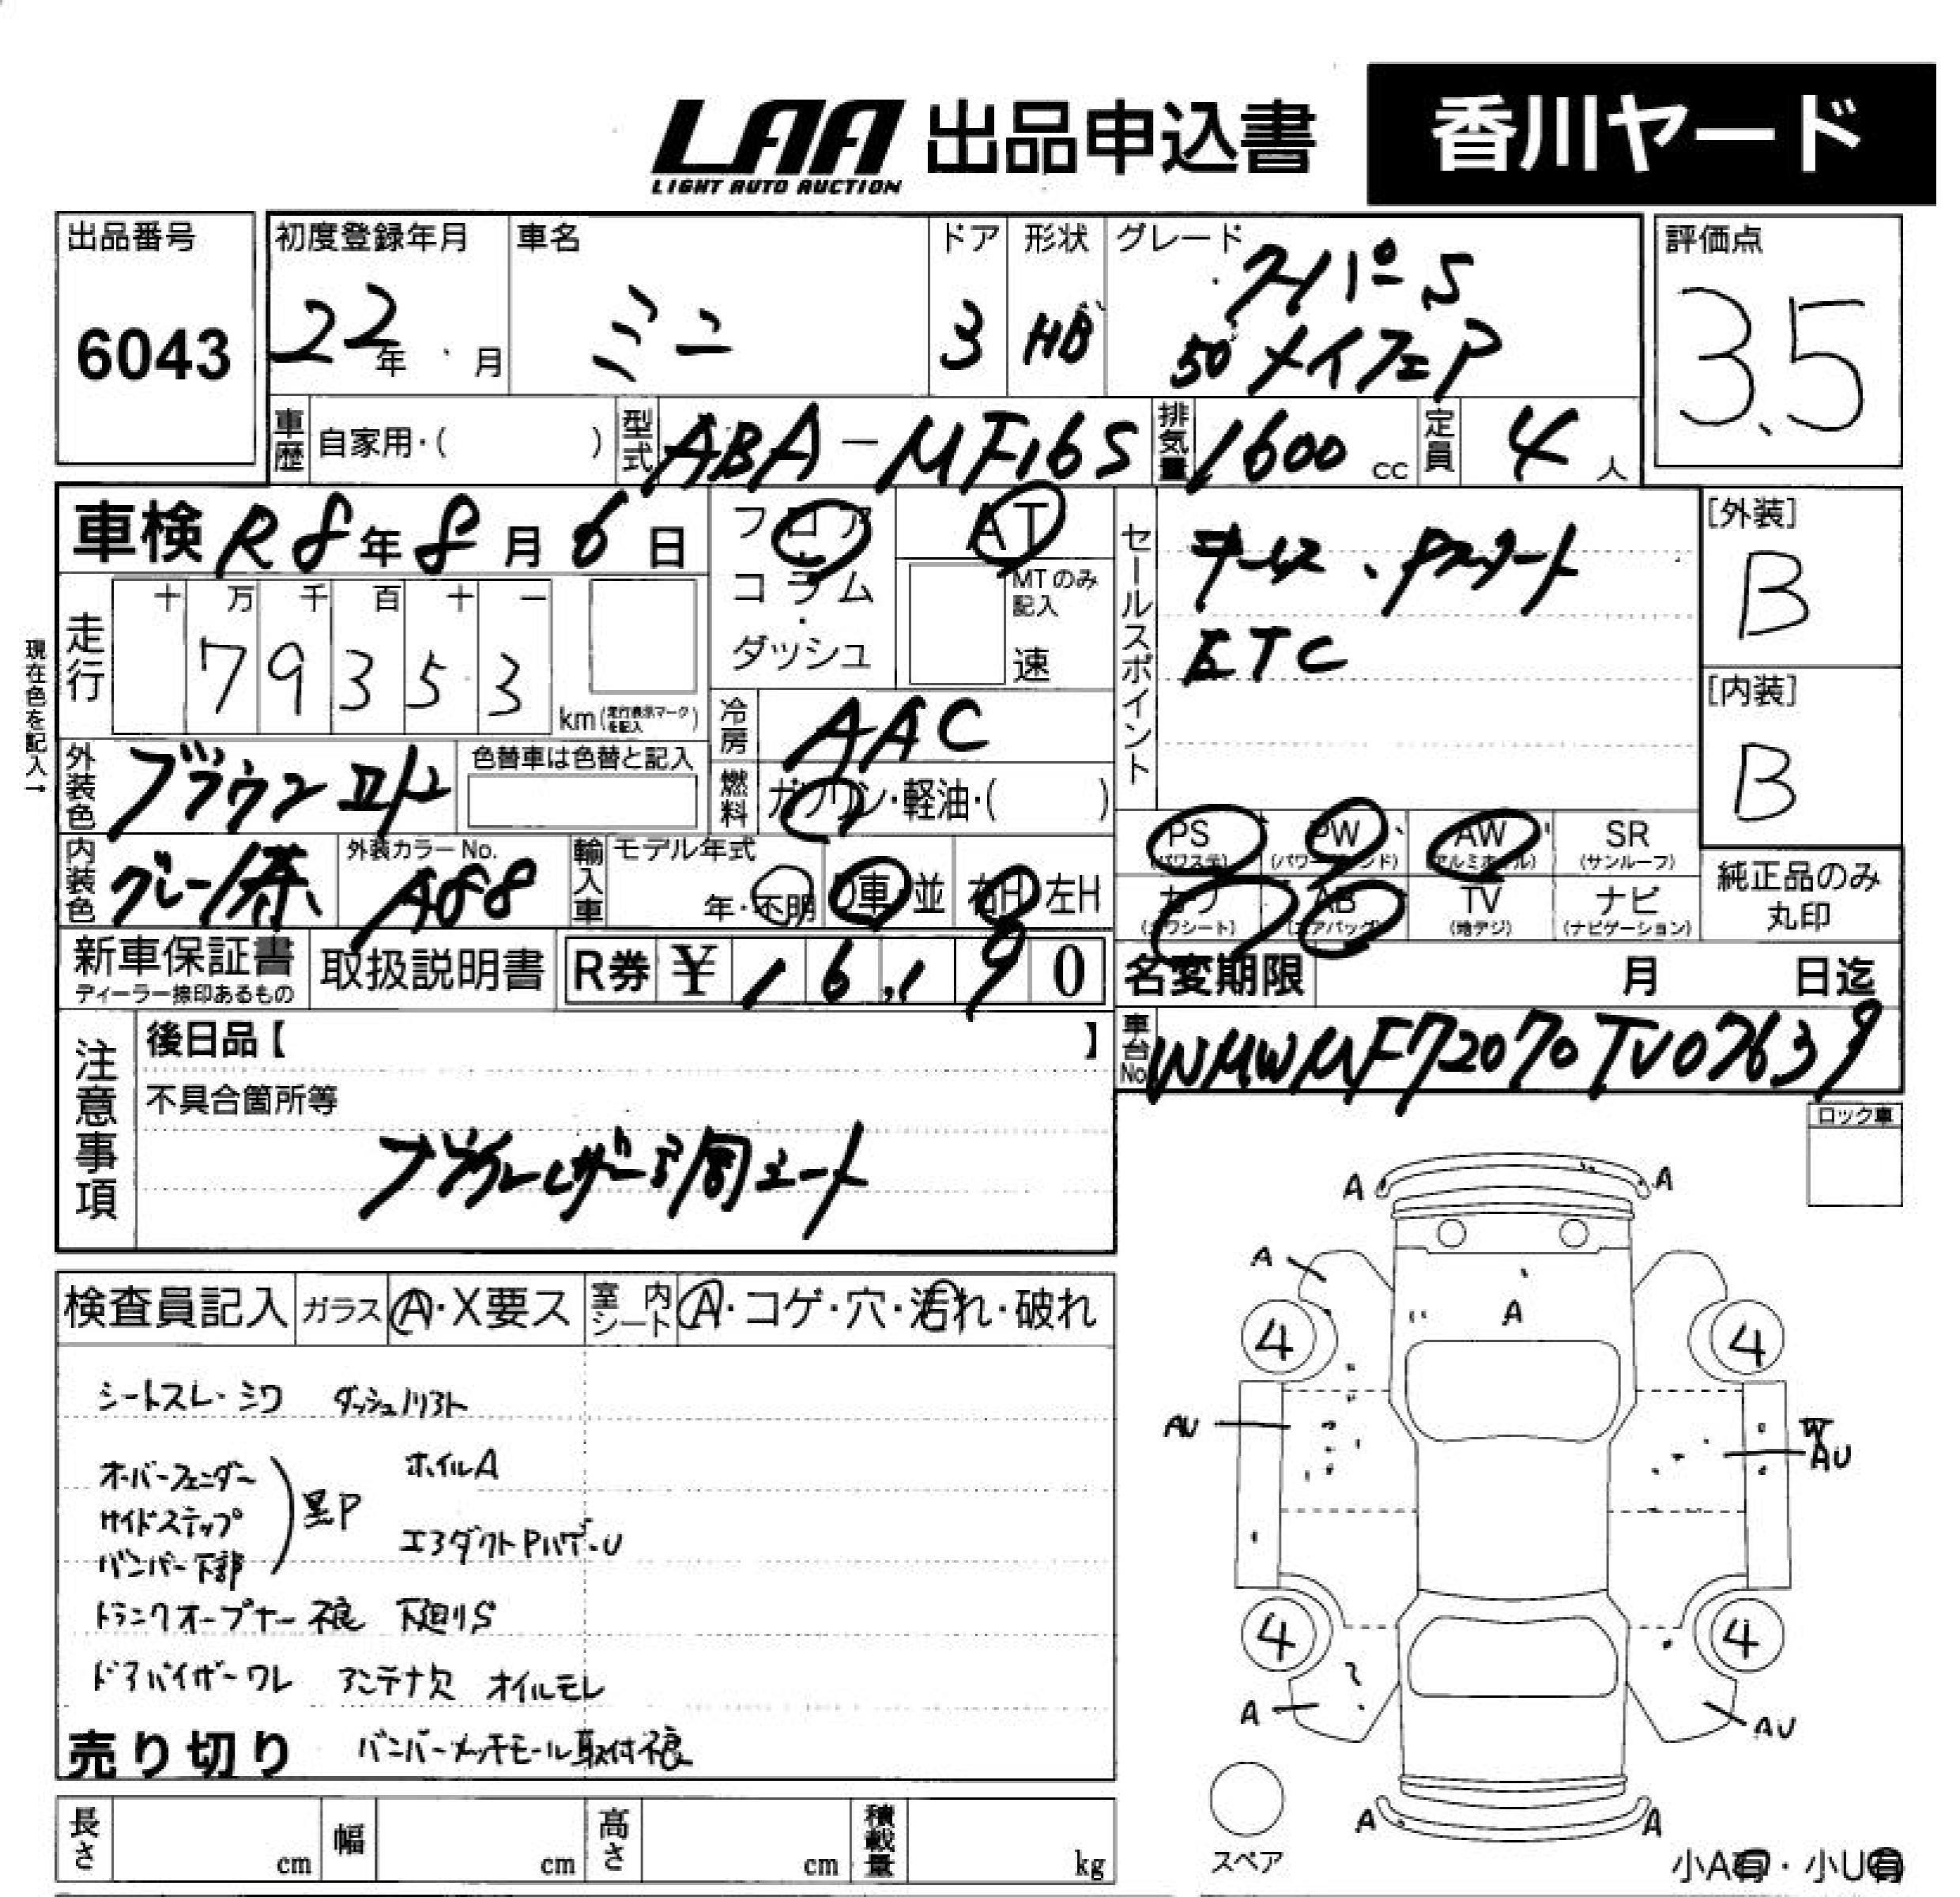 LAA 出品申込書 香川ヤード
LIGHT AUTO AUCTION
出品番号 初度登録年月 車名 ドア 形状 グレード 評価点
6043 22年 月 ミニ 3 HB クーパーS
50' メイフェア 3.5
車歴 自家用・( ) 型式 ABA-MF16S 排気量 1600 cc 定員 4 人
車検 R8年8月6日 フロア AT
コラム MTのみ記入
ダッシュ 速
走行 十 万 千 百 十 一
79353 km (走行表示マークを記入)
現在色を記入→
冷房 AAC
外装色 ブラウンⅡ 色替車は色替と記入
燃料 ガソリン・軽油・( )
内装色 グレー/茶 外装カラーNo. A88 輸入車 モデル年式 年・不明 D車 並 右H 左H
セールスポイント
ETC
[外装] B
[内装] B
PS (パワステ) PW (パワーウィンドウ) AW (アルミホイル) SR (サンルーフ)
カワ (カワシート) AB (エアバッグ) TV (地デジ) ナビ (ナビゲーション)
純正品のみ丸印
新車保証書 ディーラー捺印あるもの 取扱説明書 R券 ¥ 16,190
名変期限 月 日迄
車台No. WMWMF72070TV07639
注意事項 後日品【 】
不具合箇所等
ロック車
検査員記入 ガラス A・X要ス 室内シート A・コゲ・穴・汚れ・破れ
シートスレ・シワ ダッシュノリアト
オーバーフェンダー
サイドステップ
バンパー下部
黒P
ホイルA
エアダクトPハゲ・U
トランクオープナー不良 下廻りS
ドアバイザーワレ アンテナ欠 オイルモレ
売り切り バンパーメッキモール取付不良
A A
A
A
4 4
AU W
AU
4 4
A AU
A A
スペア
小A有・小U有
長さ cm 幅 cm 高さ cm 積載量 kg